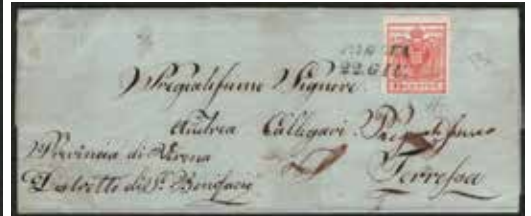 22. GIU.
Pregiatissimo Signore
Andrea Callegari Pregiatissimo
Provincia di Verona
Distretto di S. Bonifacio
Terrossa